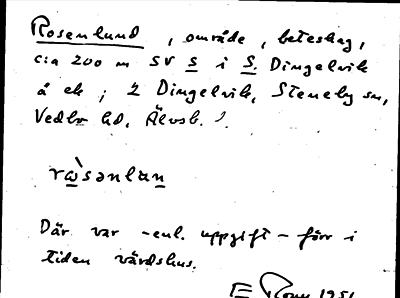 Rosenlund, område, beteshag,
c:a 200 m SV S i S. Dingelvik
å ek; 2 Dingelvik, Steneby sn,
Vedbo hd, Älvsb. l.
rὼsənlan
Där var -enl. uppgift- förr i
tiden värdshus.
E 1951